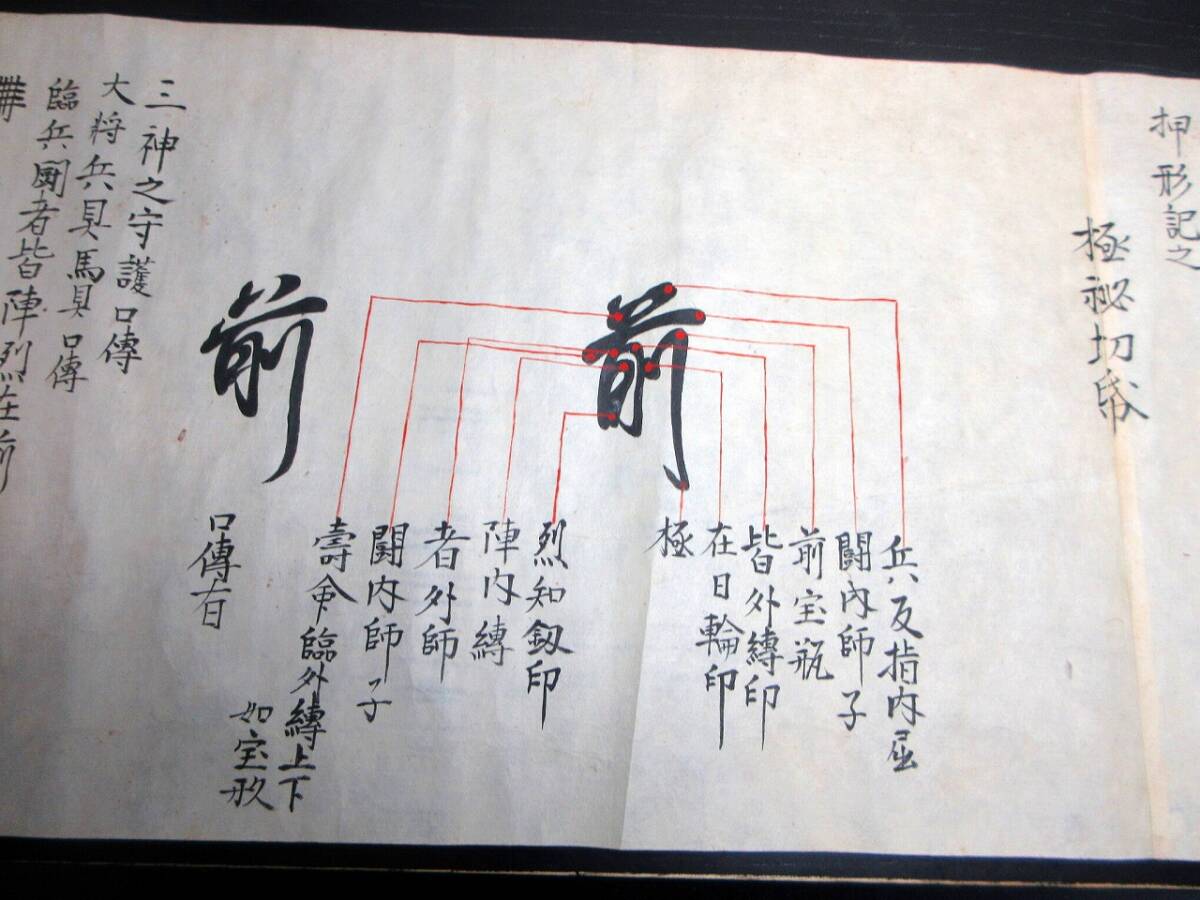 押形記之
極秘切帋
前
兵反指内屈
闘内師子
前宝瓶
皆外縛印
在日輪印
極
烈知釼印
陣内縛
者外師
闘内師子
壽命臨外縛上下
如宝形
前
口傳有
三神之守護口傳
大将兵具馬具口傳
臨兵闘者皆陣烈在前